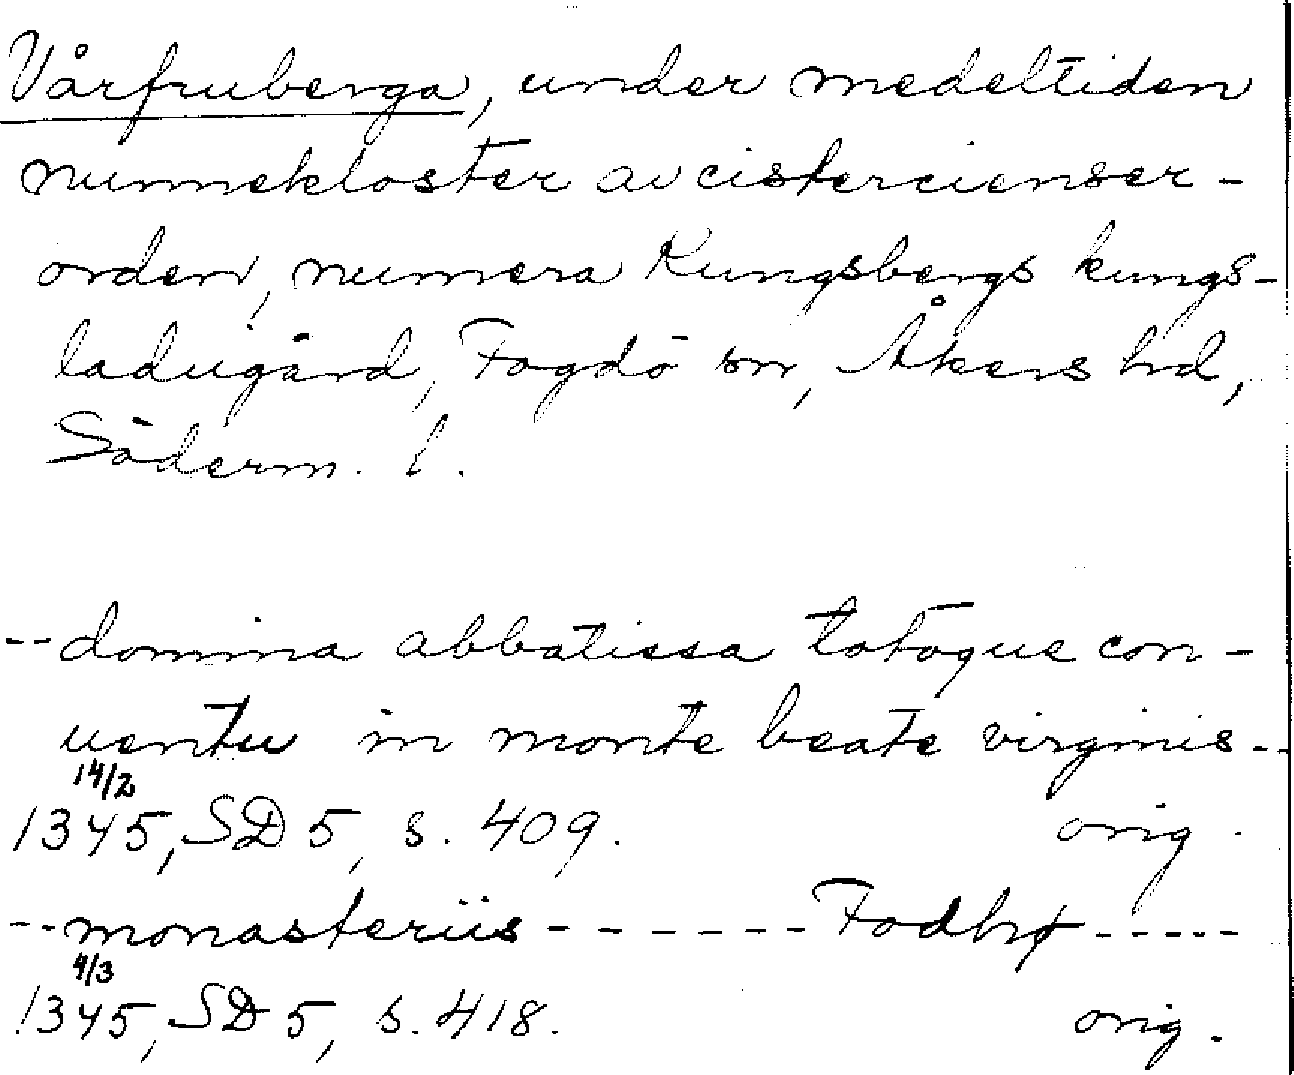 Vårfruberga, under medeltiden
nunnekloster av cistercienser-
orden, numera Kungsbergs kungs-
ladugård, Fogdö sn, Åkers hd,
Söderm. l.
-- domina abbatissa totoque con-
uentu in monte beate virginis --
14/2
1345, SD 5, s. 409. orig.
-- monasteriis ------- Fodhø -----
4/3
1345, SD 5, s. 418. orig.